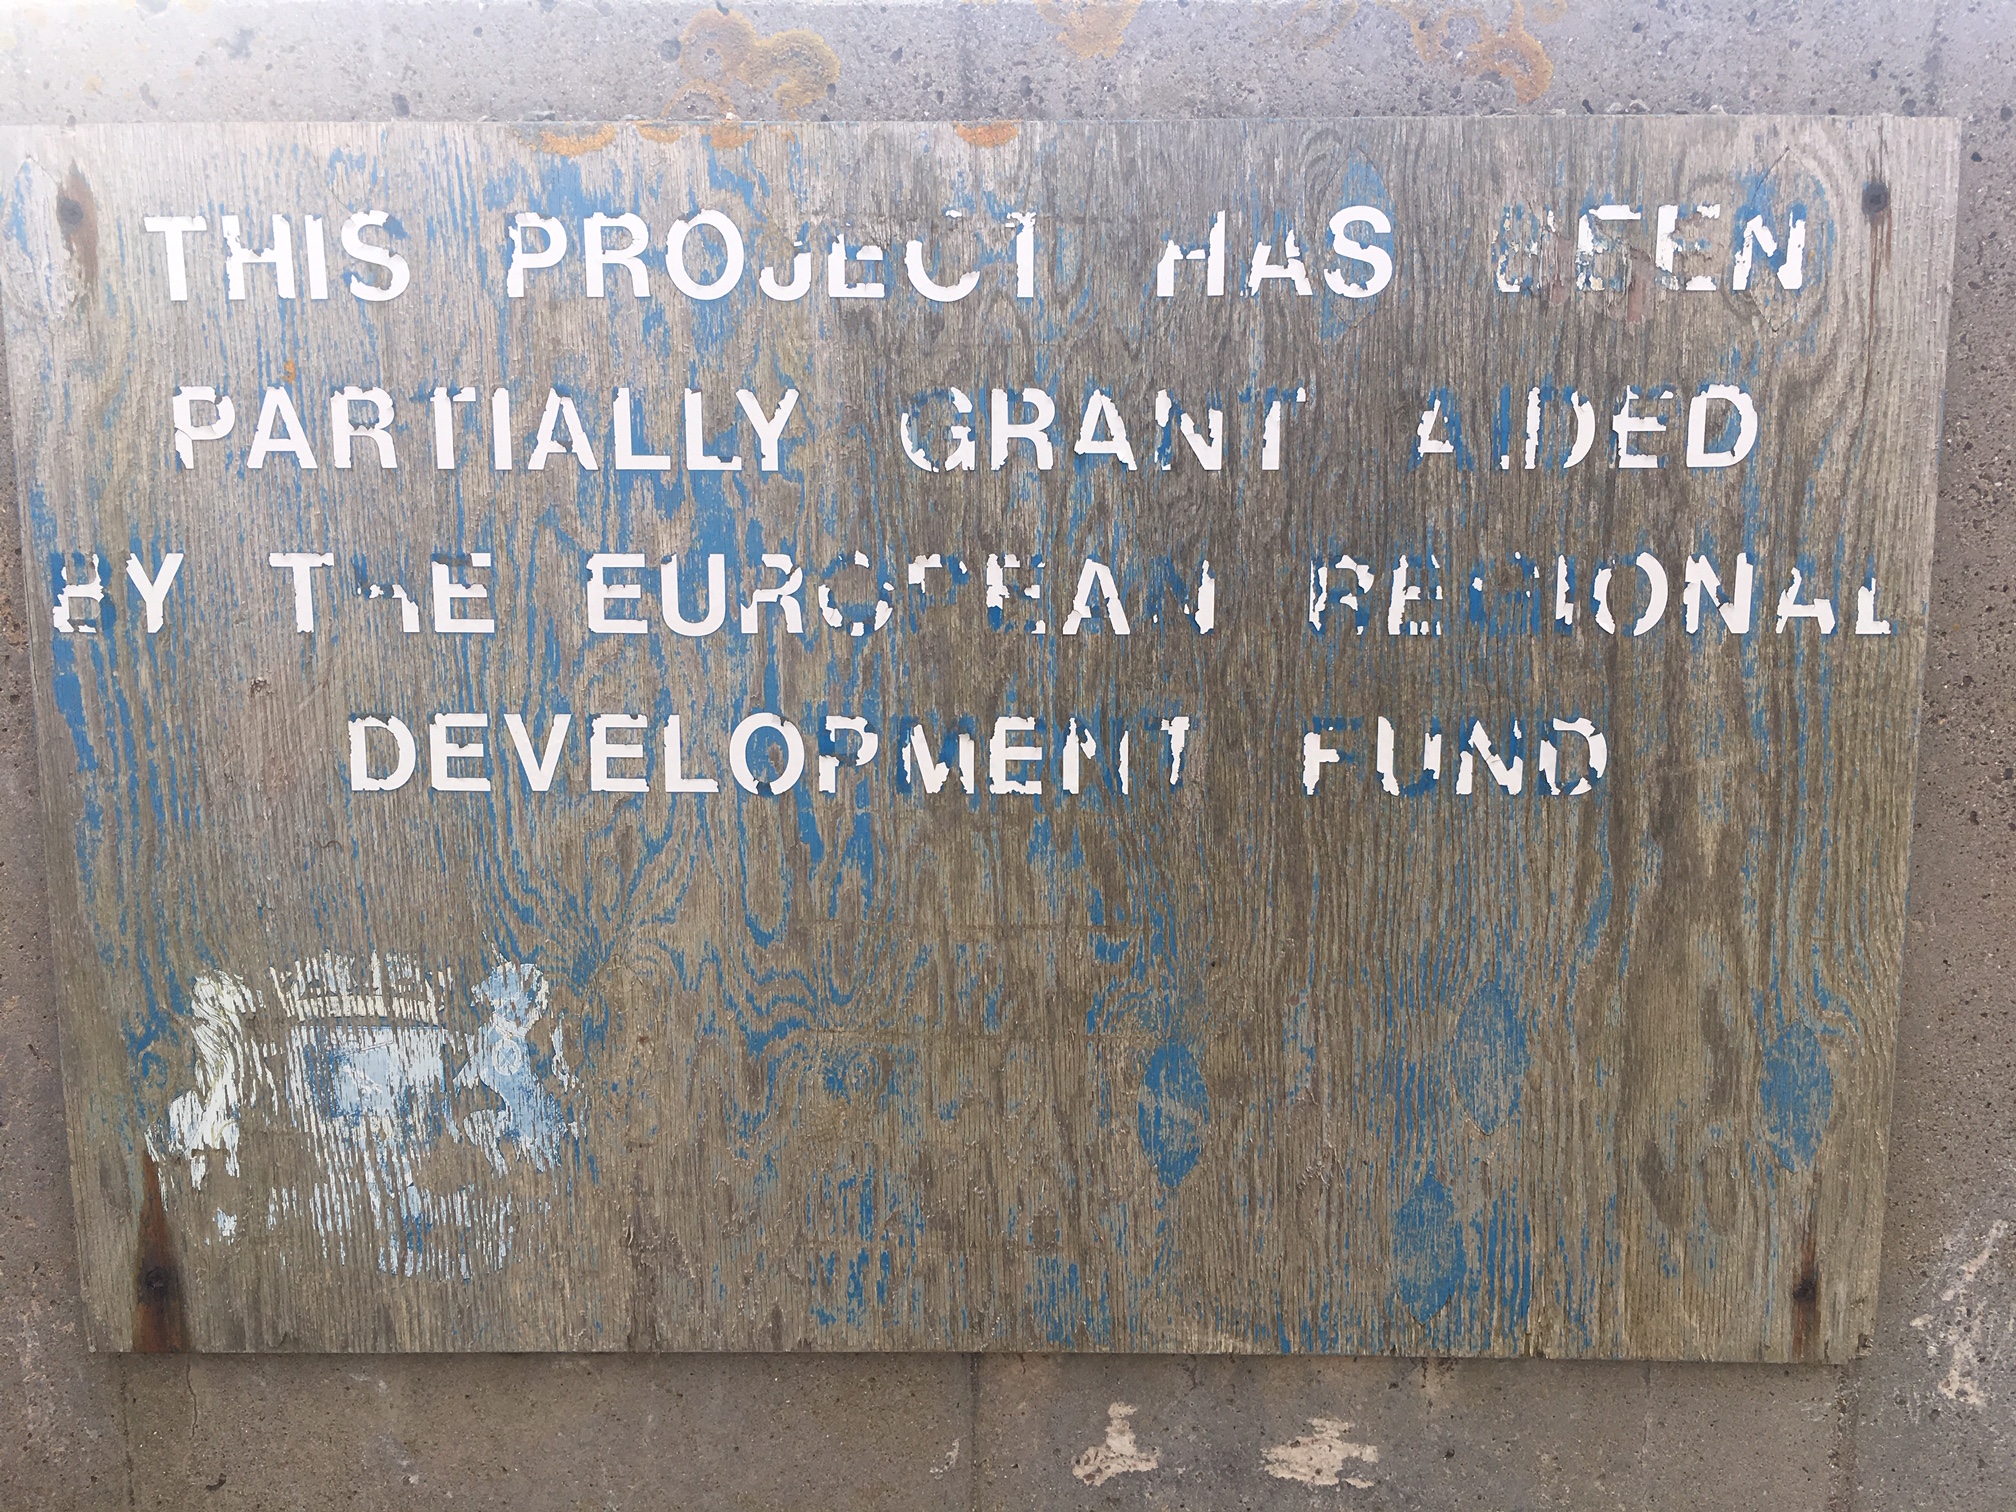 THIS PROJECT HAS BEEN
PARTIALLY GRANT AIDED
BY THE EUROPEAN REGIONAL
DEVELOPMENT FUND